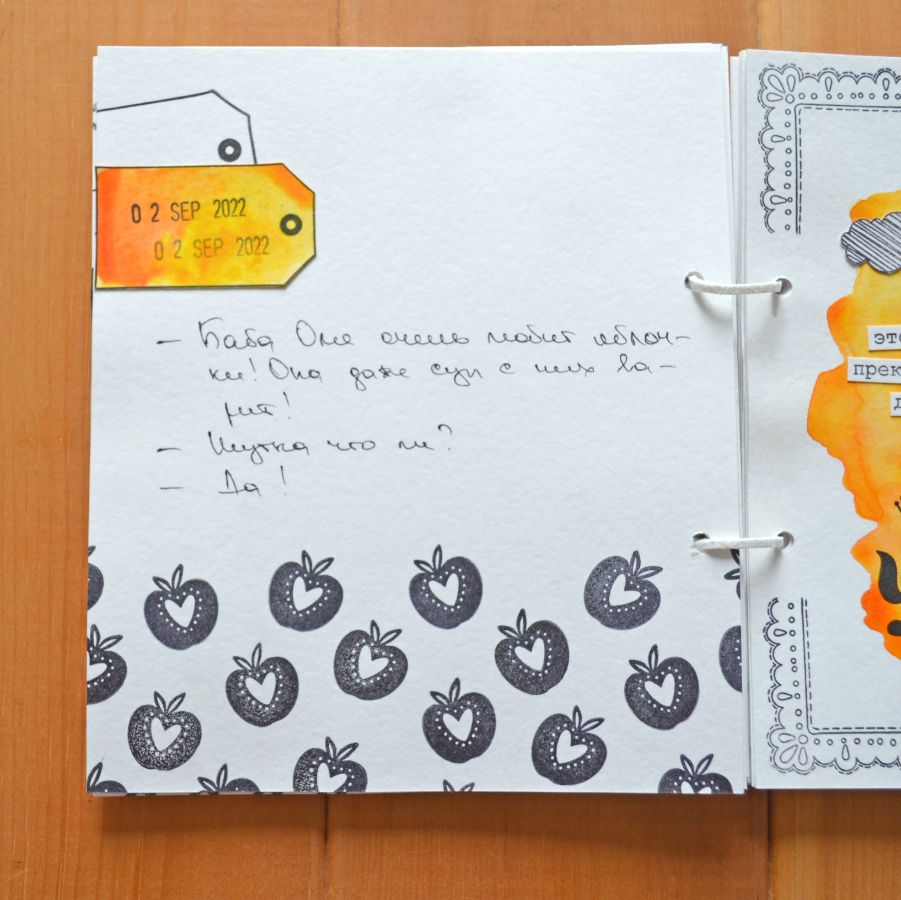 02 SEP 2022
02 SEP 2022
— Баба Оле очень любит яблоч-
ки! Она даже суп с них ва-
рит!
— Шутка что ли?
— Да!
это
прек
д